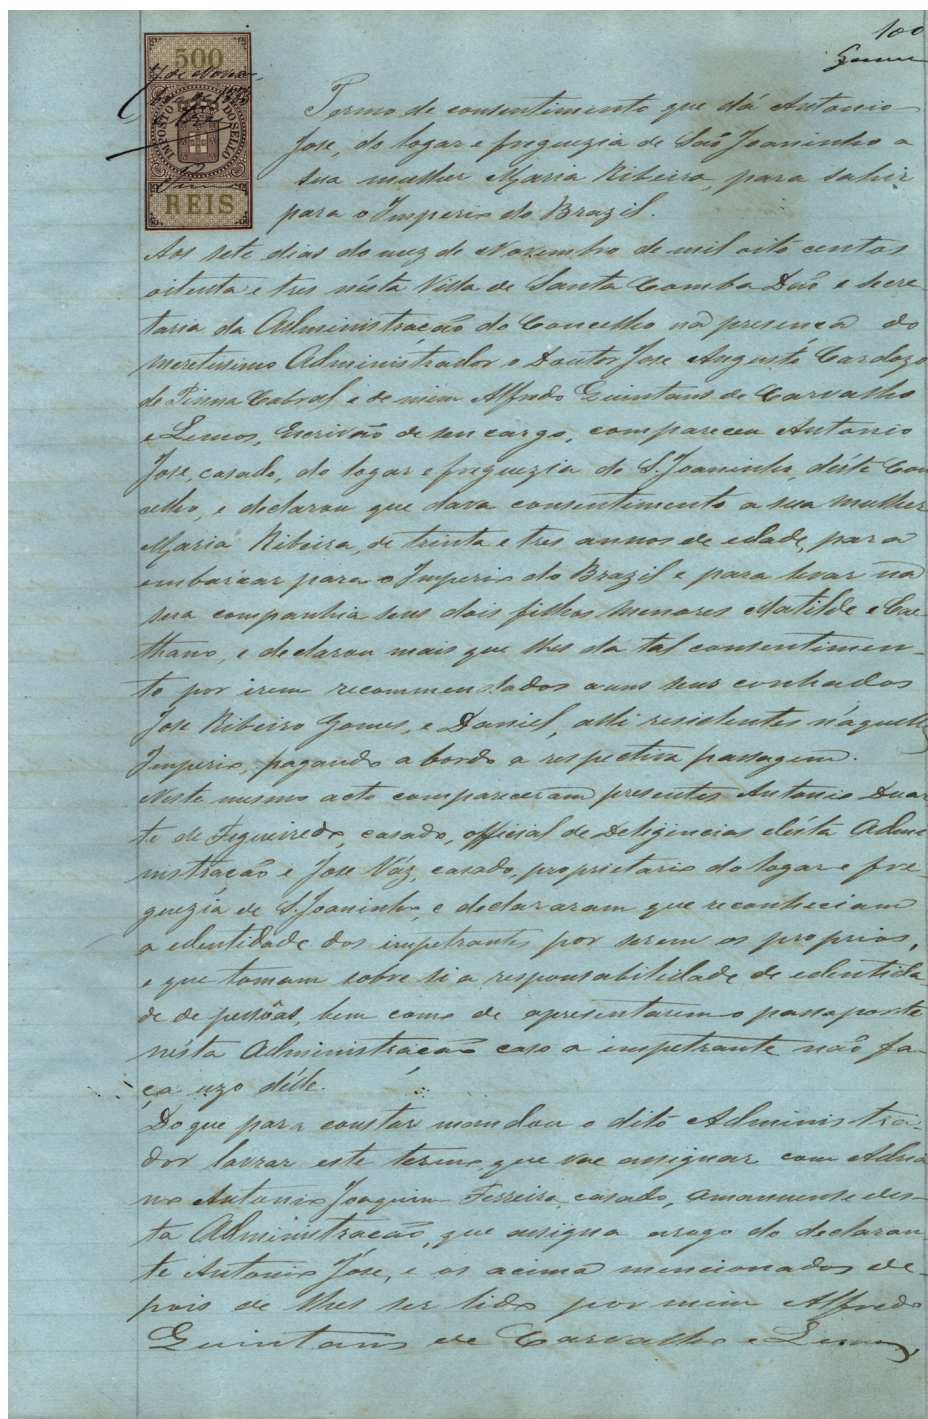 100
500
IMPOSTO DO SELLO
REIS
Termo de consentimento que dá Antonio
José, do logar e freguezia de São Joaninho a
sua mulher Maria Ribeira, para sahir
para o Imperio do Brazil.
Aos sete dias do mez de Novembro de mil oito centos
oitenta e tres nésta Villa de Santa Comba Dão e Secre-
taria da Administração do Concelho na presença do
meretissimo Administrador o Doutor José Augusto Cardozo
de Pinna Cabral e de mim Alfredo Quintans de Carvalho
e Lemos, Escrivão de seu cargo, compareceu Antonio
José, casado, do logar e freguezia de S. Joaninho, déste Con-
celho, e declarou que dava consentimento a sua mulher
Maria Ribeira, de trinta e tres annos de edade, para
embarcar para o Imperio do Brazil e para levar na
sua companhia seus dois filhos menores Matilde e Cae-
thano, e declarou mais que lhes da tal consentimen-
to por irem recommendados a uns seus cunhados
José Ribeiro Gomes, e Daniel, alli residentes n'aquelle
Imperio, pagando a bordo a respectiva passagem.
Neste mesmo acto compareceram presentes Antonio Duar-
te de Figueiredo, casado, official de Deligencias désta Admi-
nistração e José Váz, casado, proprietario do logar e fre-
guezia de S. Joaninho, e declararam que reconheciam
a edentidade dos impetrantes por serem os proprios,
e que tomam sobre si a responsabilidade de edentida-
de de pessôas, bem como de apresentarem o passaporte
nésta Administração caso a impetrante não fa-
ça uzo déle.
Do que para constar mandou o dito Administra-
dor lavrar este termo que vae assignar com Adria-
no Antonio Joaquim Ferreira, casado, amanuense des-
ta Administração, que assigna arogo do declaran-
te Antonio José, e os acima mencionados de-
pois de lhes ser lido por mim Alfredo
Quintans de Carvalho e Lemos,